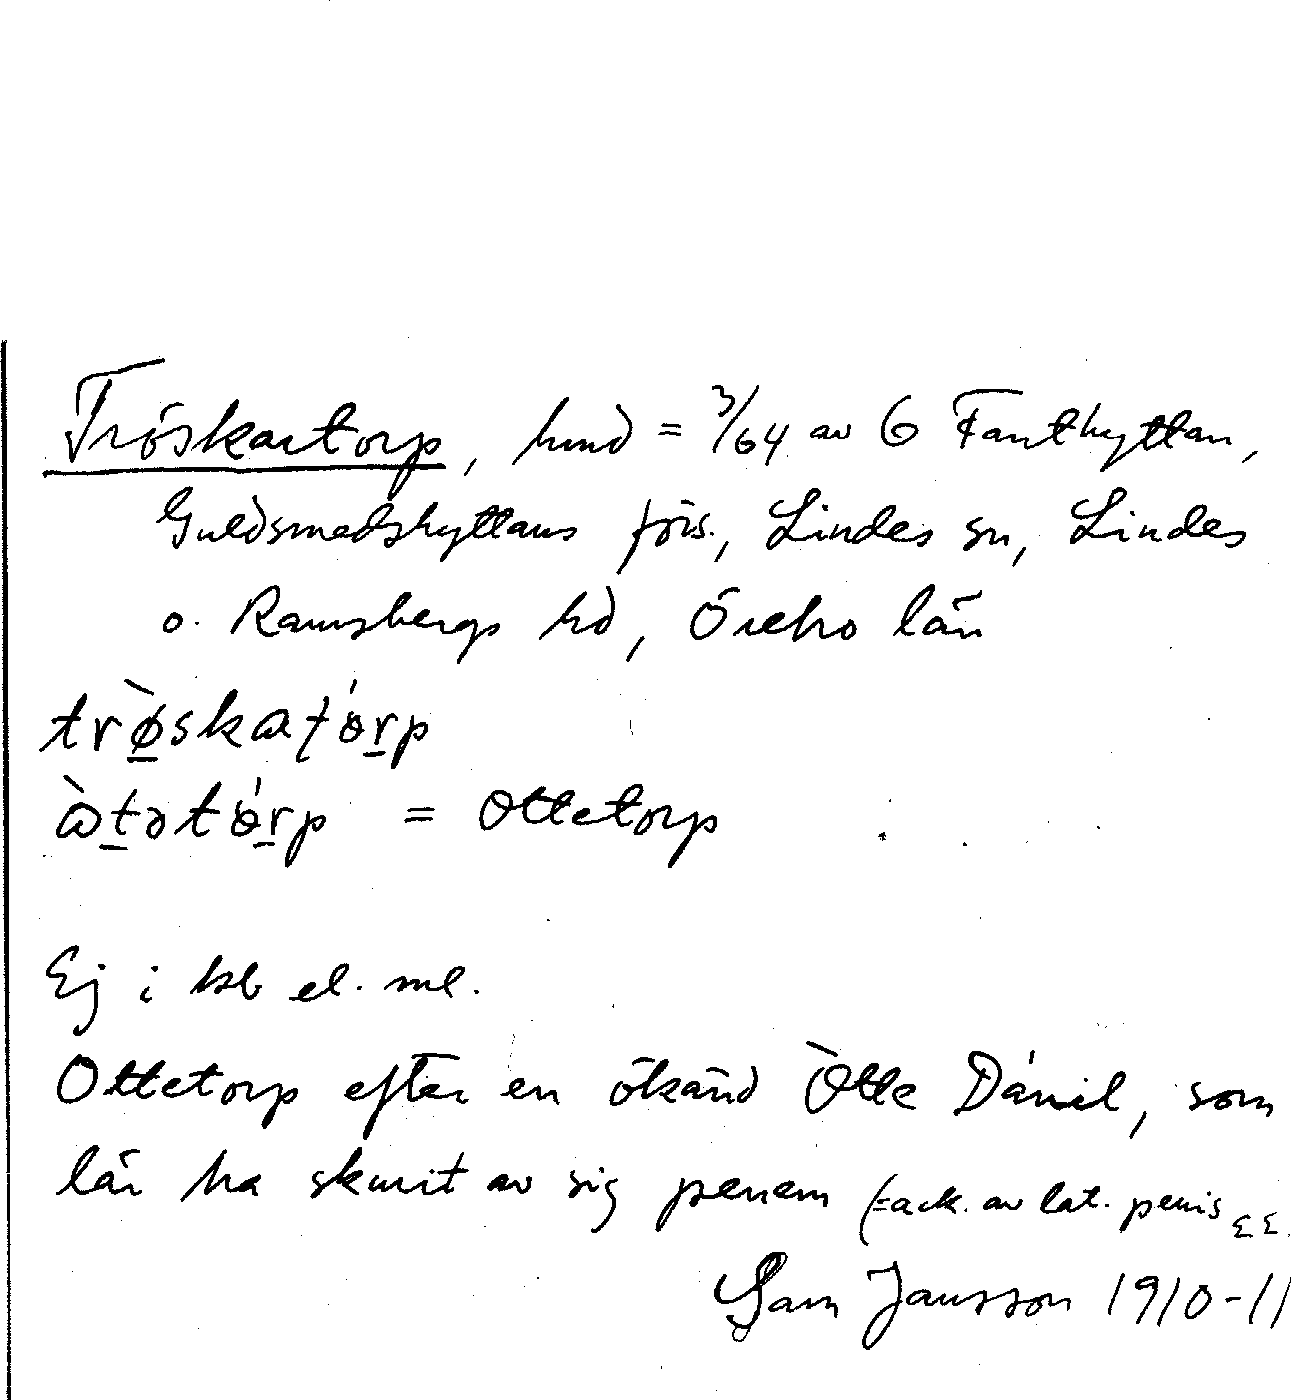 Tröskartorp, hmd = 3/64 av 6 Fanthyttan,
Guldsmedshyttans förs., Lindes sn, Lindes
o. Ramsbergs hd, Örebro län
trø̀skatórp
àtətórp = Ottetorp
Ej i kb el. ml.
Ottetorp efter en ökänd Òtte Dánil, som
lär ha skurit av sig penem (=ack. av lat. penis
Sam Jansson 1910-11